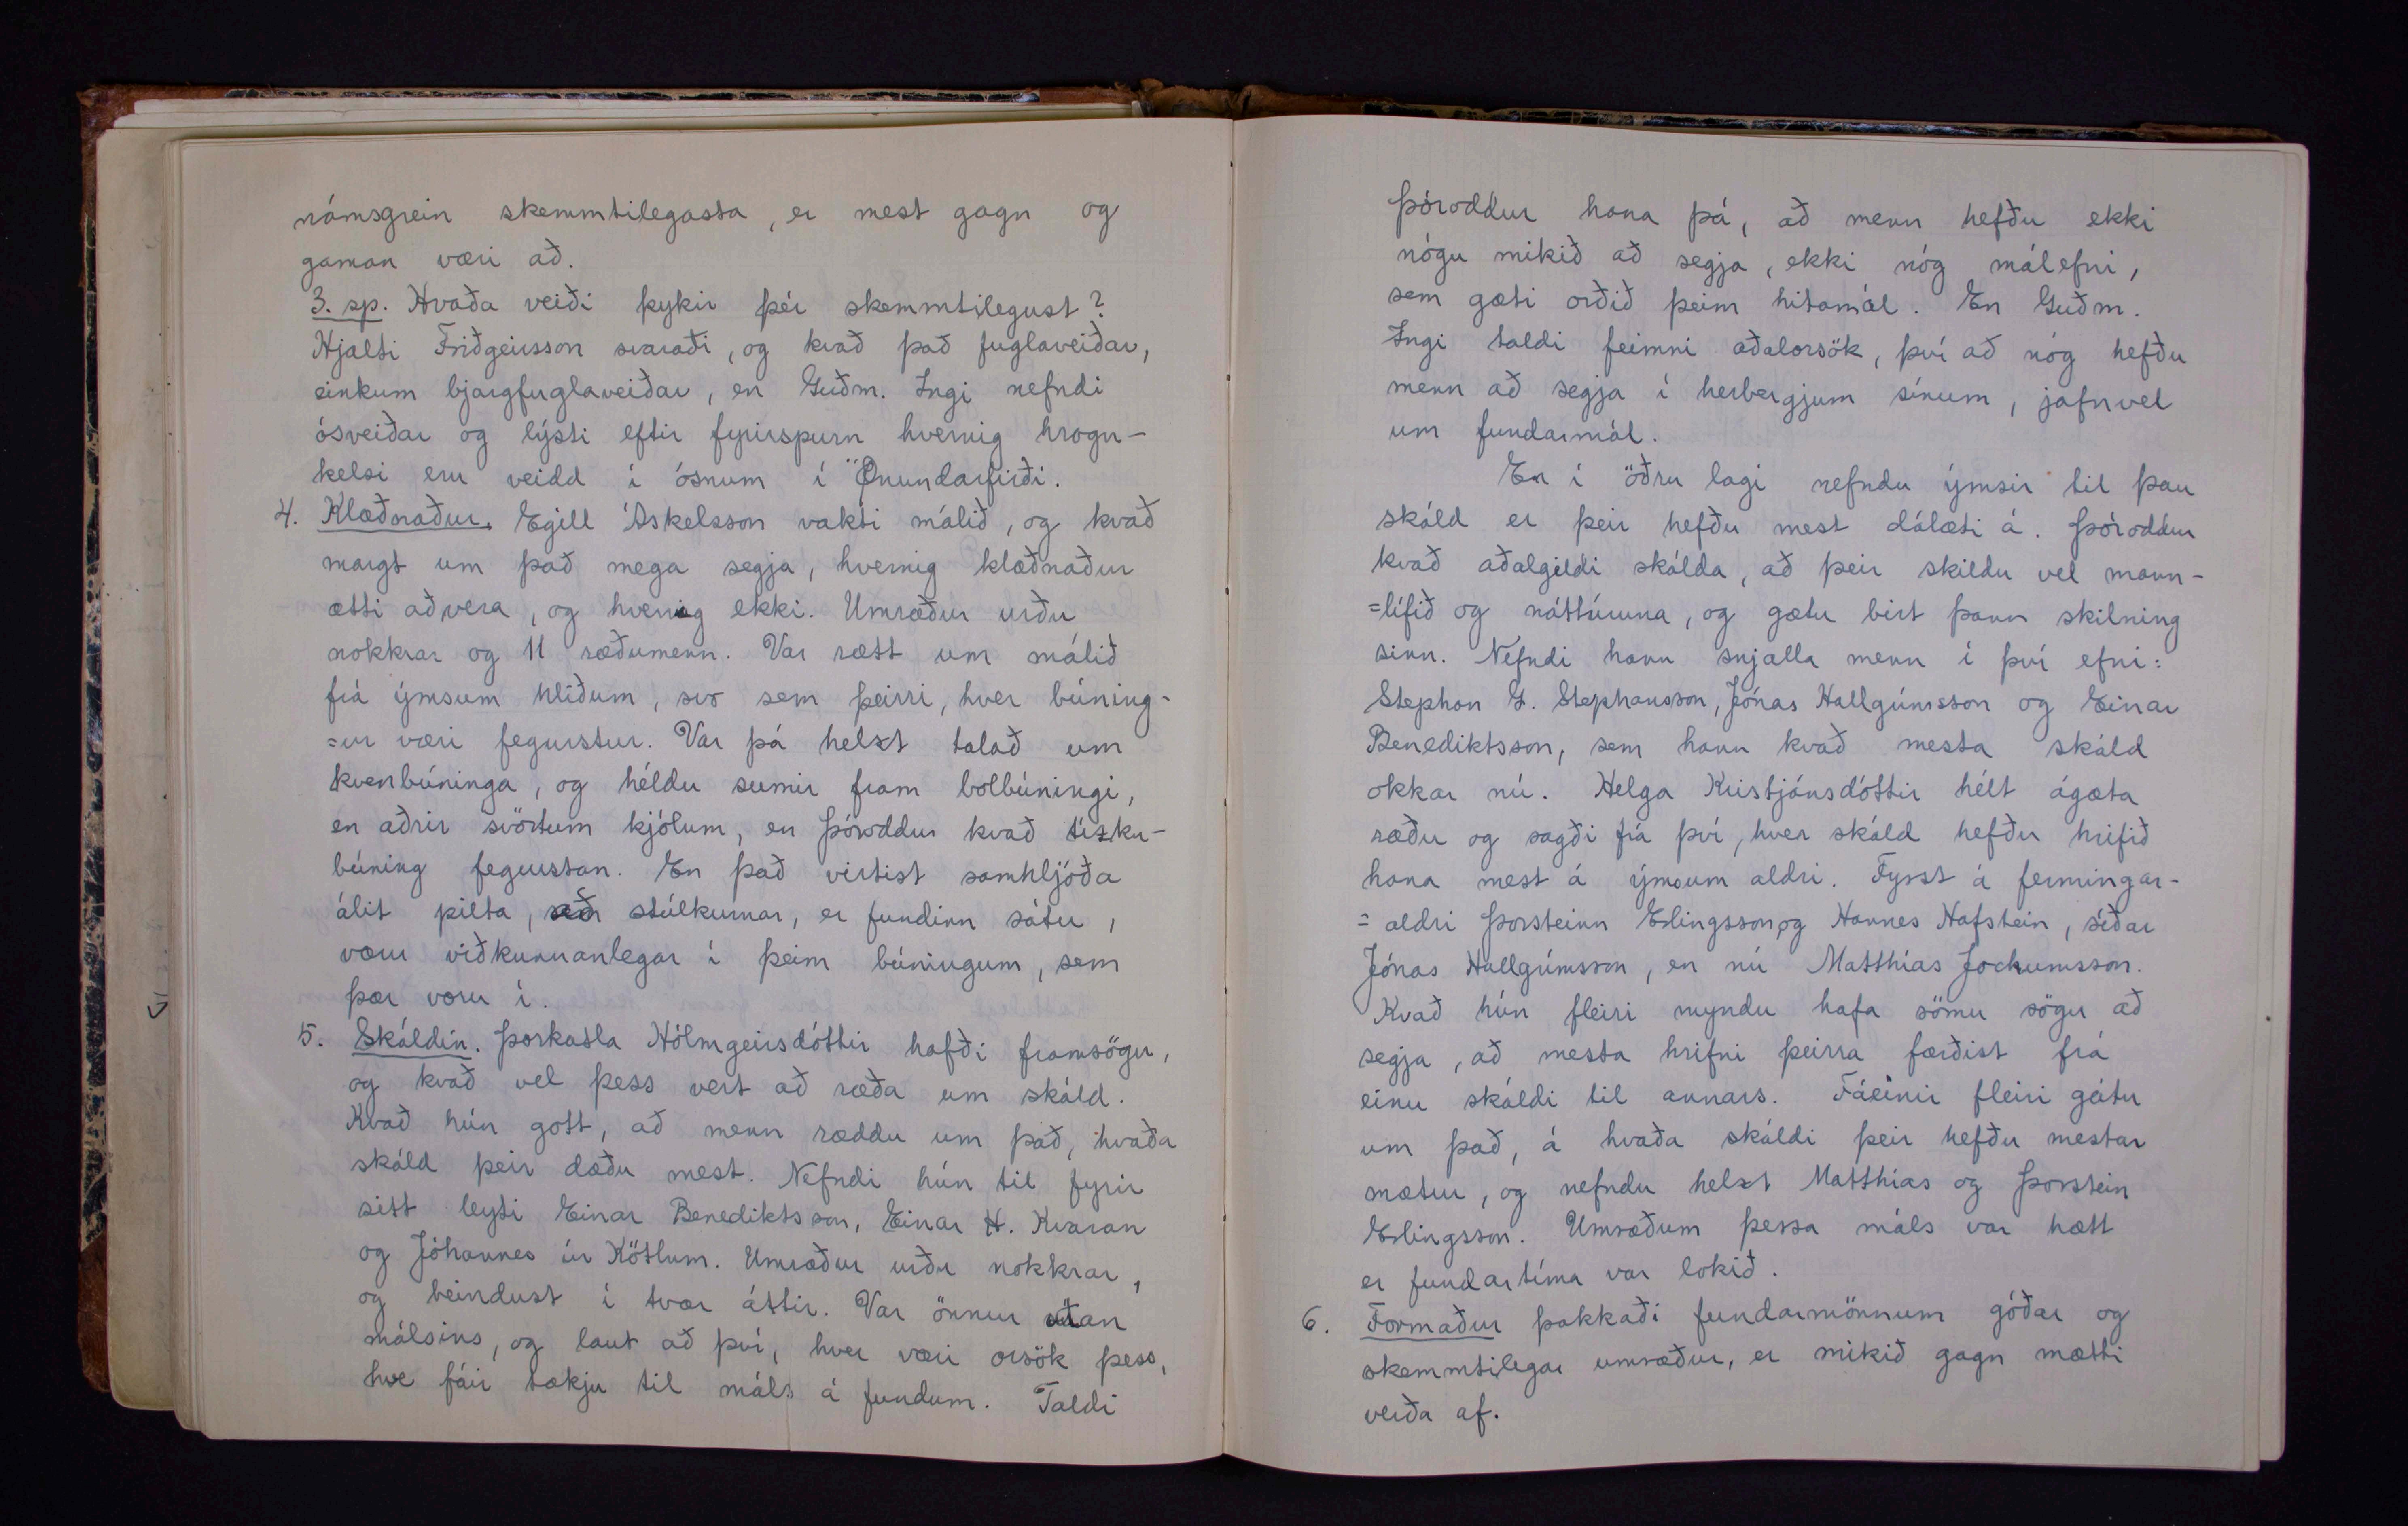 námsgrein skemmtilegasta, er mest gagn og
gaman væri að.
3. sp. Hvaða veiði þykir þér skemmtilegust?
Hjalti Friðgeirsson svaraði, og kvað það fuglaveiðar,
einkum bjargfuglaveiðar, en Guðm. Ingi nefndi
ósveiðar og lýsti eftir fyrirspurn hvernig hrogn-
kelsi eru veidd í ósnum í Önundarfirði.
4. Klæðnaður. Egill Áskelsson vakti málið, og kvað
margt um það mega segja, hvernig klæðnaður
ætti að vera, og hvernig ekki. Umræður urðu
nokkrar og 11 ræðumenn. Var rætt um málið
frá ýmsum hliðum, svo sem þeirri, hver búning-
=ur væri fegurstur. Var þá helzt talað um
kvenbúninga, og héldu sumir fram bolbúningi,
en aðrir svörtum kjólum, en Þóroddur kvað tízku-
búning fegurstan. En það virtist samhljóða
álit pilta, að stúlkurnar, er fundinn sátu,
væru viðkunnanlegar í þeim búningum, sem
þær voru í.
5. Skáldin. Þorkatla Hólmgeirsdóttir hafði framsögu,
og kvað vel þess vert að ræða um skáld.
Kvað hún gott, að menn ræddu um það, hvaða
skáld þeir dæðu mest. Nefndi hún til fyrir
sitt leyti Einar Benediktsson, Einar H. Kvaran
og Jóhannes úr Kötlum. Umræður urðu nokkrar,
og beindust í tvær áttir. Var önnur utan
málsins, og laut að því, hver væri orsök þess,
hve fáir tækju til máls á fundum. Taldi
Þóroddur hana þá, að menn hefðu ekki
nógu mikið að segja, ekki nóg málefni,
sem gæti orðið þeim hitamál. En Guðm.
Ingi taldi feimni aðalorsök, því að nóg hefðu
menn að segja í herbergjum sínum, jafnvel
um fundarmál.
En í öðru lagi nefndu ýmsir til þau
skáld er þeir hefðu mest dálæti á. Þóroddur
kvað aðalgildi skálda, að þeir skildu vel mann-
=lífið og náttúruna, og gætu birt þann skilning
sinn. Nefndi hann snjalla menn í því efni:
Stephan G. Stephansson, Jónas Hallgrímsson og Einar
Benediktsson, sem hann kvað mesta skáld
okkar nú. Helga Kristjánsdóttir hélt ágæta
ræðu og sagði frá því, hver skáld hefðu hrifið
hana mest á ýmsum aldri. Fyrst á fermingar-
=aldri Þorsteinn Erlingsson og Hannes Hafstein, síðar
Jónas Hallgrímsson, en nú Matthías Jochumsson.
Kvað hún fleiri myndu hafa sömu sögu að
segja, að mesta hrifni þeirra færðist frá
einu skáldi til annars. Fáeinir fleiri gátu
um það, á hvaða skáldi þeir hefðu mestar
mætur, og nefndu helzt Matthías og Þorstein
Erlingsson. Umræðum þessa máls var hætt
er fundartíma var lokið.
6. Formaður þakkaði fundarmönnum góðar og
skemmtilegar umræður, er mikið gagn mætti
verða af.